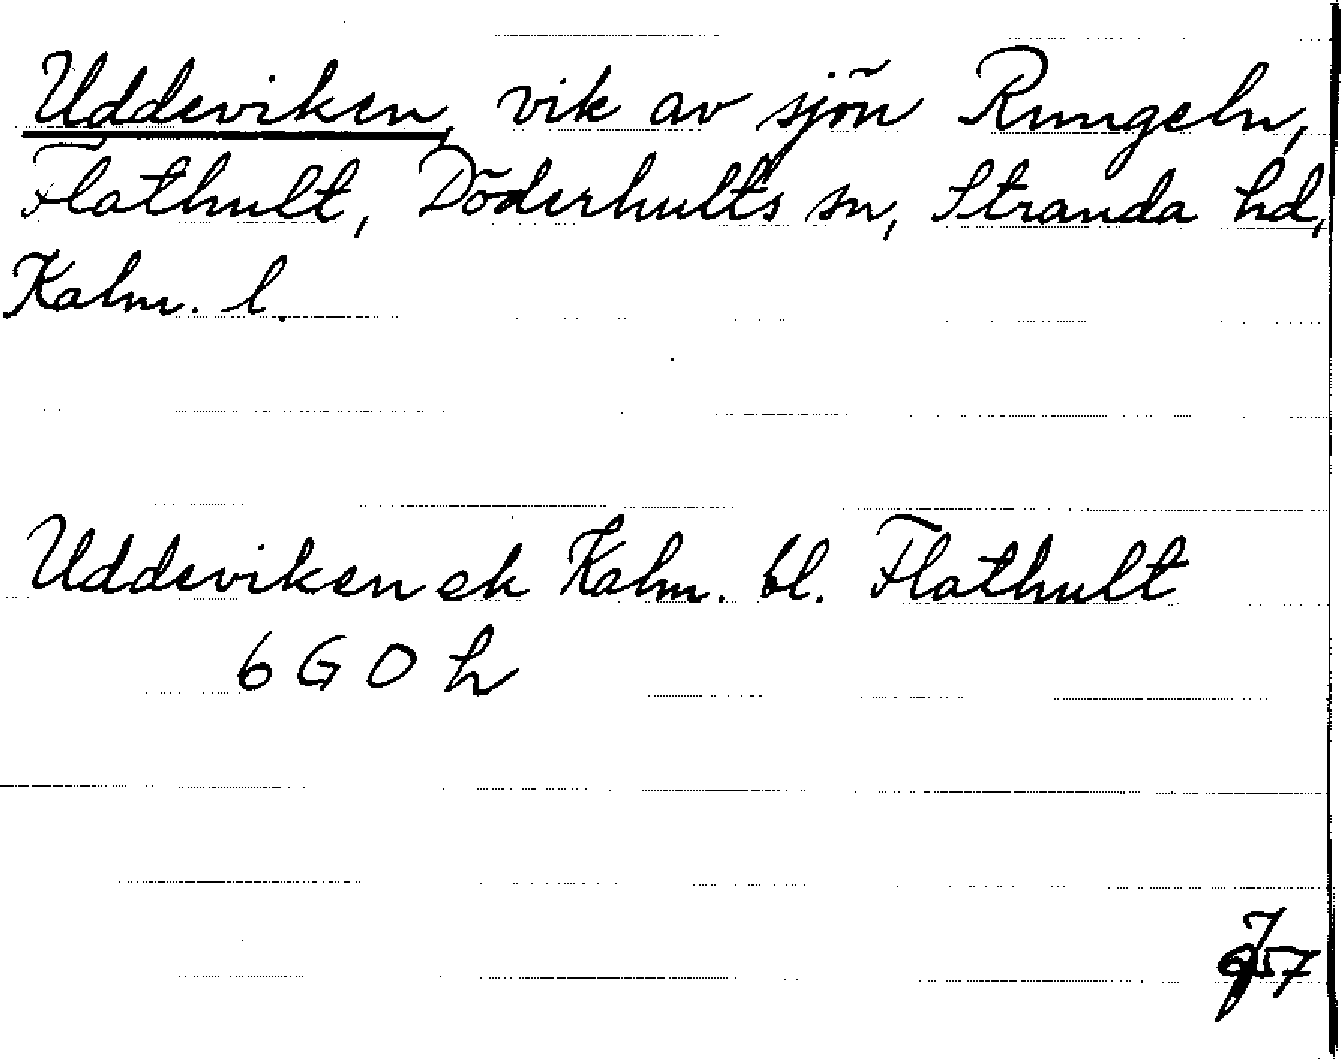 Uddeviken, vik av sjön Rungeln,
Flathult, Döderhults sn, Stranda hd,
Kalm. l.
Uddeviken ek Kalm. bl. Flathult
6 G 0 h